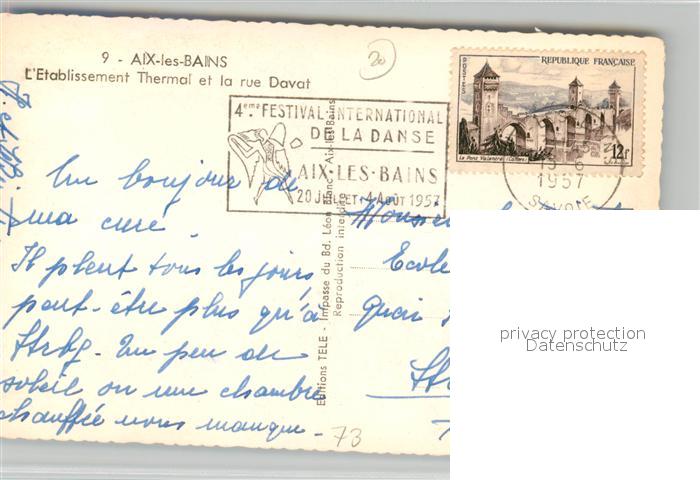 9 - AIX-les-BAINS
L'Etablissement Thermal et la rue Davat
20
4eme FESTIVAL INTERNATIONAL
DE LA DANSE
AIX-LES-BAINS
20 JUILLET-4 AOÛT 1957
POSTES
REPUBLIQUE FRANÇAISE
Le Pont Valentré (Cahors)
12F
1957
SAVOIE
Un bonjour de
ma cure.
Il pleut tous les jours,
peut-être plus qu'à
Strbg. Un peu de
soleil ou une chambre
chauffée nous manque.
Editions TELE - Impasse du Bd. Léon Blanc Aix-les-Bains
Reproduction interdite
Monsieur
Ecole
Quai
73
privacy protection
Datenschutz